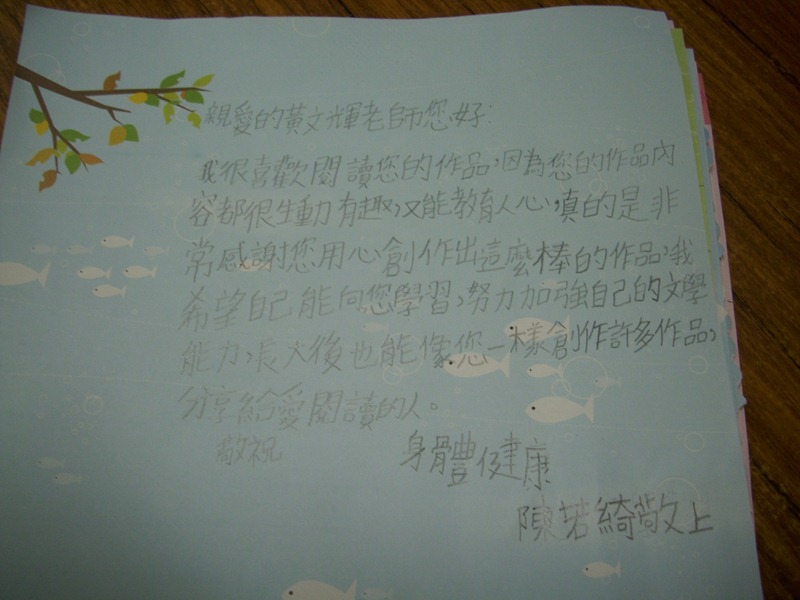 親愛的黃文輝老師您好:
我很喜歡閱讀您的作品,因為您的作品內
容都很生動有趣,又能教育人心,真的是非
常感謝您用心創作出這麼棒的作品,我
希望自己能向您學習,努力加強自己的文學
能力,長大後也能像您一樣創作許多作品,
分享給愛閱讀的人。
敬祝
身體健康
陳若綺敬上